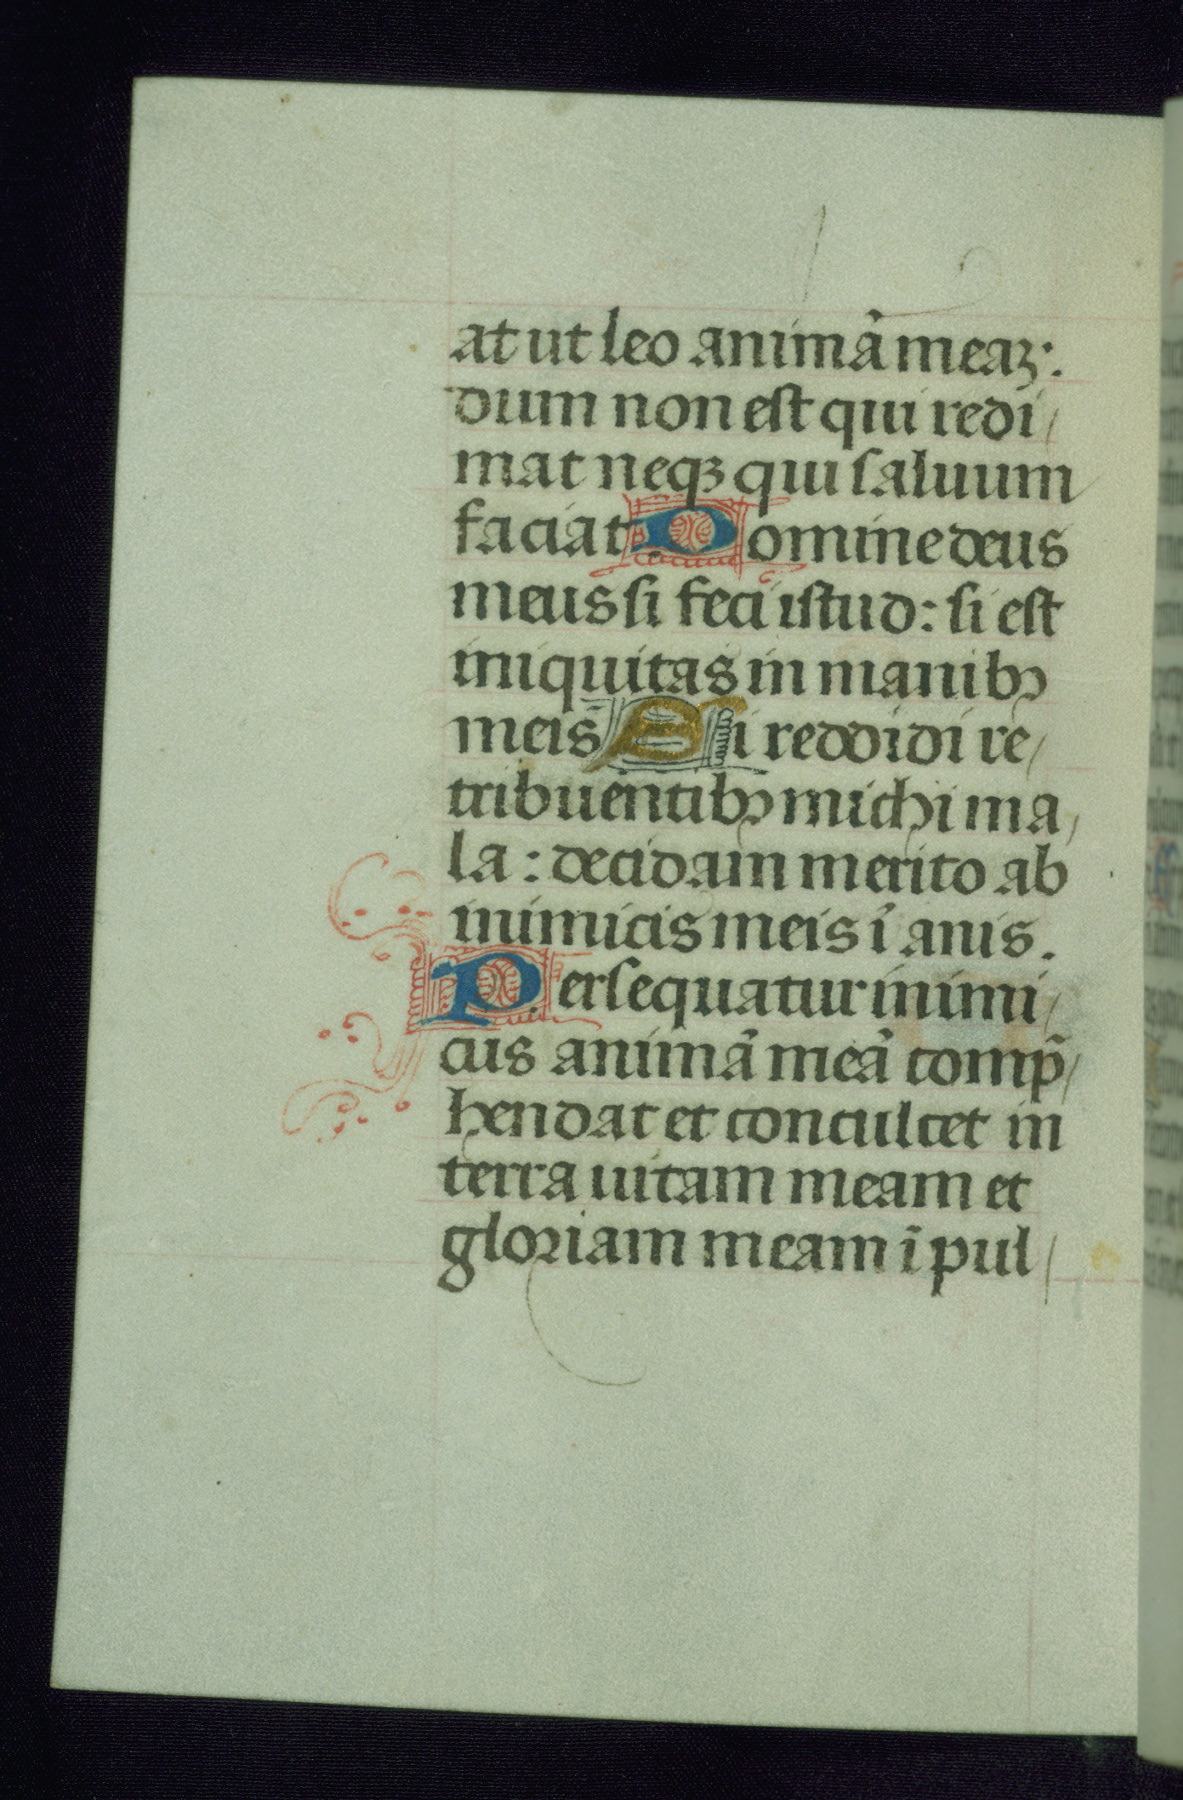 at ut leo animā meaꝫ:
dum non est qui redi/
mat neqꝫ qui saluum
faciat Domine deus
meus si feci istud: si est
iniquitas in manibꝫ
meis Si reddidi re/
tribuentibꝫ michi ma/
la: decidam merito ab
inimicis meis ī anis.
Persequatur inimi/
cus animā meā comp̄/
hendat et conculcet in
terra uitam meam et
gloriam meam ī pul/